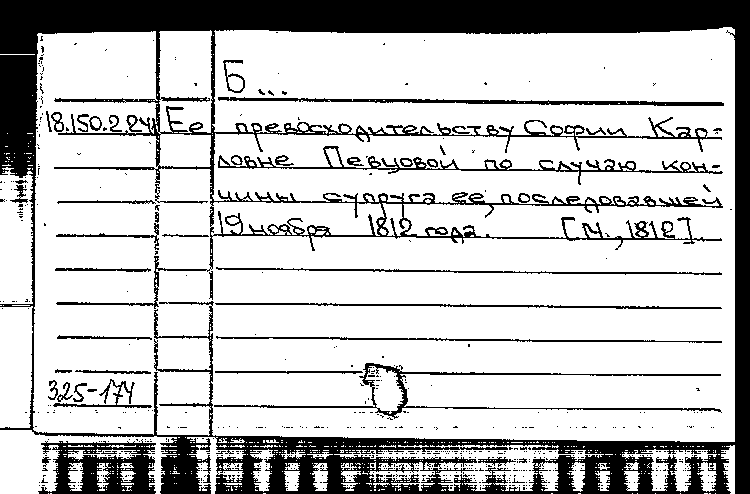 Б...
18.150.2.241 Ее превосходительству Софии Кар-
ловне Певцовой по случаю кон-
чины супруга ее, последовавшей
19 ноября 1812 года. [М., 1812]
325-174